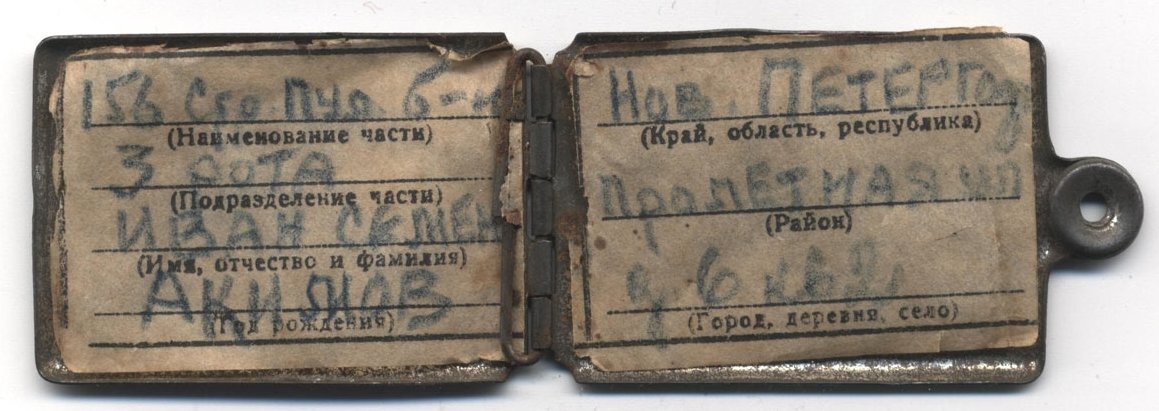 156 Сто. Пул. б-н
(Наименование части)
3 рота
(Подразделение части)
Иван Семен
(Имя, отчество и фамилия)
Акинов
(Год рождения)
Нов. Петергод
(Край, область, республика)
Пролетная ул
(Район)
д 6 кв 2
(Город, деревня, село)